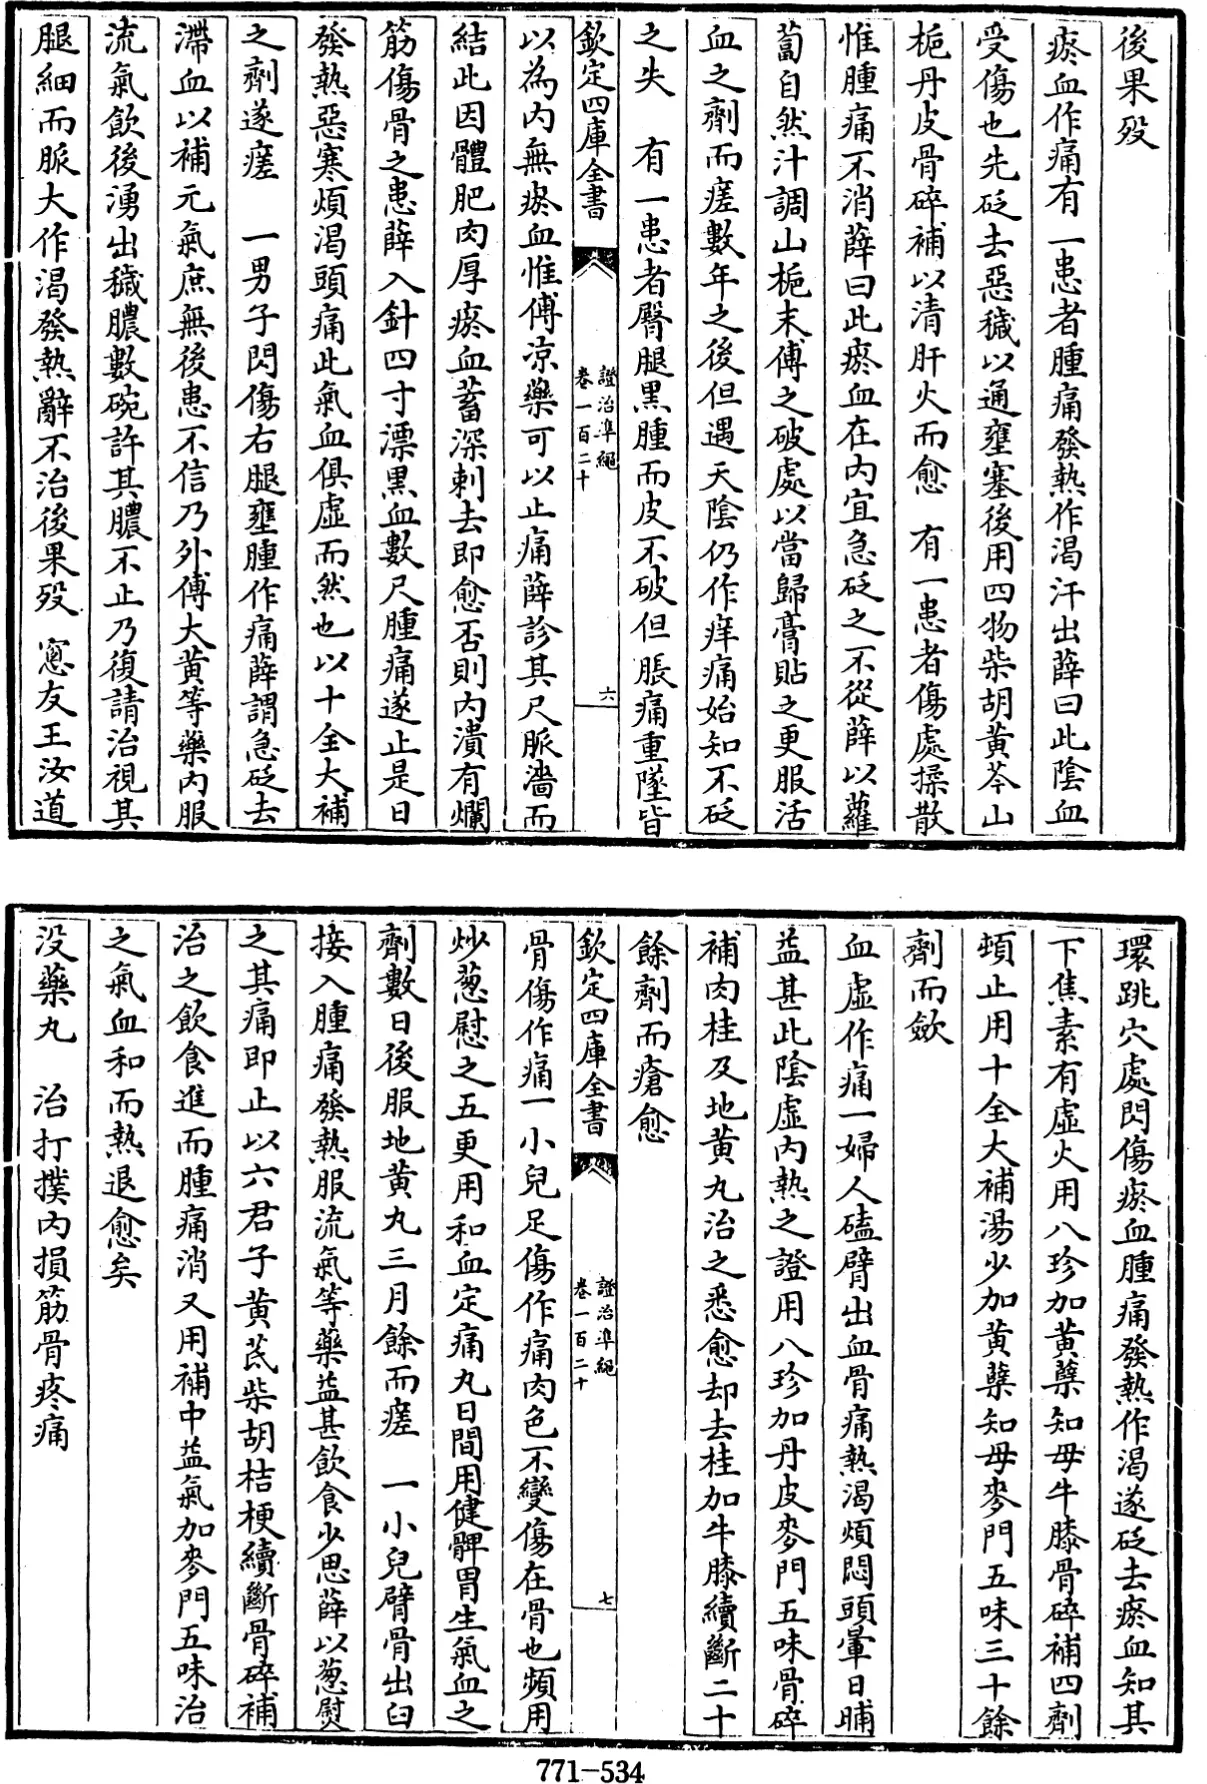 後果殁
瘀血作痛有一患者腫痛發熱作渴汗出薛曰此陰血
受傷也先砭去惡穢以通壅塞後用四物柴胡黄芩山
栀丹皮骨碎補以清肝火而愈　有一患者傷處揉散
惟腫痛不消薛曰此瘀血在内宜急砭之不從薛以蘿
蔔自然汁調山栀末傅之破處以當歸膏貼之更服活
血之劑而瘥數年之後但遇天陰仍作痒痛始知不砭
之失　有一患者臀腿黒腫而皮不破但脹痛重墜皆
欽定四庫全書
證治凖繩
卷一百二十
六
以為内無瘀血惟傅凉藥可以止痛薛診其尺脈濇而
結此因體肥肉厚瘀血蓄深刺去即愈否則内潰有爛
筋傷骨之患薛入針四寸漂黒血數尺腫痛遂止是日
發熱惡寒煩渴頭痛此氣血俱虚而然也以十全大補
之劑遂瘥　一男子閃傷右腿壅腫作痛薛謂急砭去
滯血以補元氣庶無後患不信乃外傅大黄等藥内服
流氣飲後湧出穢膿數碗許其膿不止乃復請治視其
腿細而脈大作渴發熱辭不治後果殁　窻友王汝道
環跳穴處閃傷瘀血腫痛發熱作渴遂砭去瘀血知其
下焦素有虚火用八珍加黄蘖知母牛膝骨碎補四劑
頓止用十全大補湯少加黄蘖知母麥門五味三十餘
劑而歛
血虚作痛一婦人磕臂出血骨痛熱渴煩悶頭暈日晡
益甚此陰虚内熱之證用八珍加丹皮麥門五味骨碎
補肉桂及地黄丸治之悉愈却去桂加牛膝續斷二十
餘劑而瘡愈
欽定四庫全書
證治凖繩
卷一百二十
七
骨傷作痛一小兒足傷作痛肉色不變傷在骨也頻用
炒葱慰之五更用和血定痛丸日間用健脾胃生氣血之
劑數日後服地黄丸三月餘而瘥　一小兒臂骨出臼
接入腫痛發熱服流氣等藥益甚飲食少思薛以葱熨
之其痛即止以六君子黄芪柴胡桔梗續斷骨碎補
治之飲食進而腫痛消又用補中益氣加麥門五味治
之氣血和而熱退愈矣
没藥丸　治打撲内損筋骨疼痛
771-534